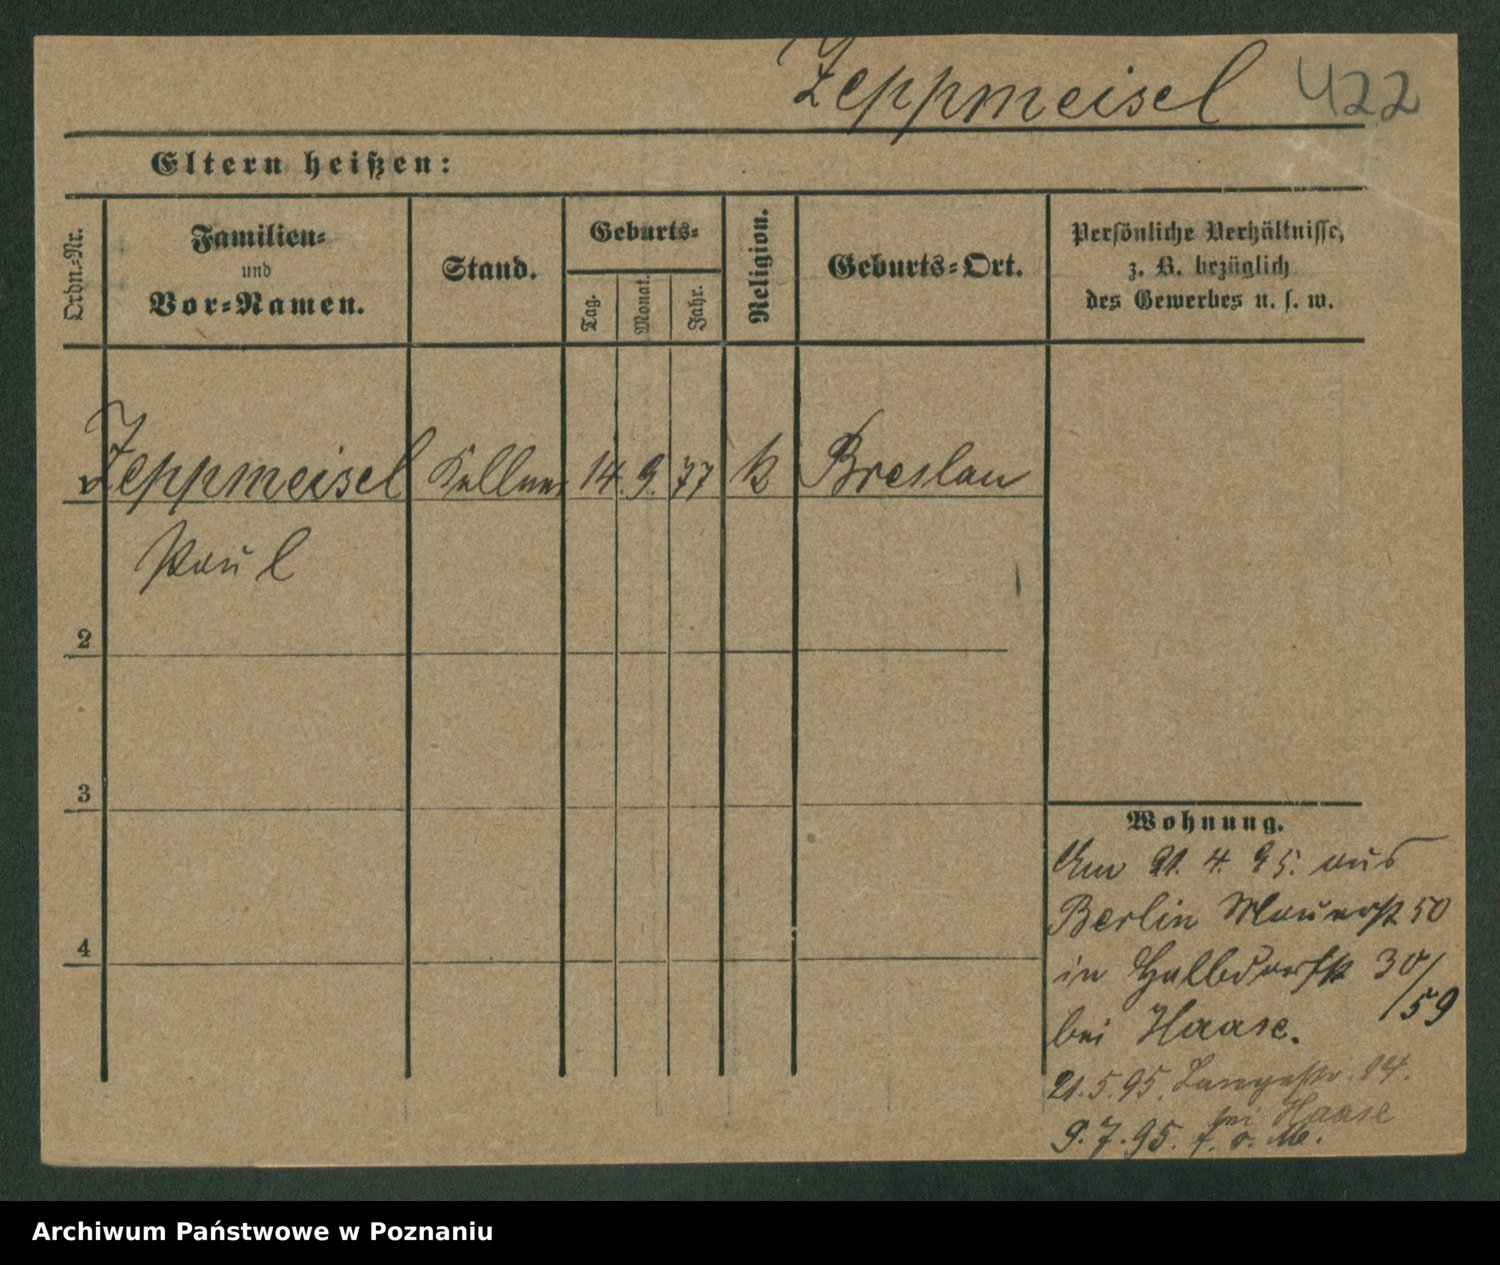 Zeppmeisel 422
Eltern heißen:
Ordn.-Nr.
Familien-
und
Vor-Namen.
Stand.
Geburts-
Tag.
Monat.
Jahr.
Religion.
Geburts-Ort.
Persönliche Verhältnisse,
z. B. bezüglich
des Gewerbes u. s. w.
1 Zeppmeisel Kellner 14. 9. 77 k Breslau
Paul
2
3
4
Wohnung.
Am 21. 4. 95. aus
Berlin Mauerst 50
in Halbdorfstr 30/
/59
bei Haase.
21.5.95. Langestr. 14.
bei Haase
9.7.95. f. o. M.
Archiwum Państwowe w Poznaniu